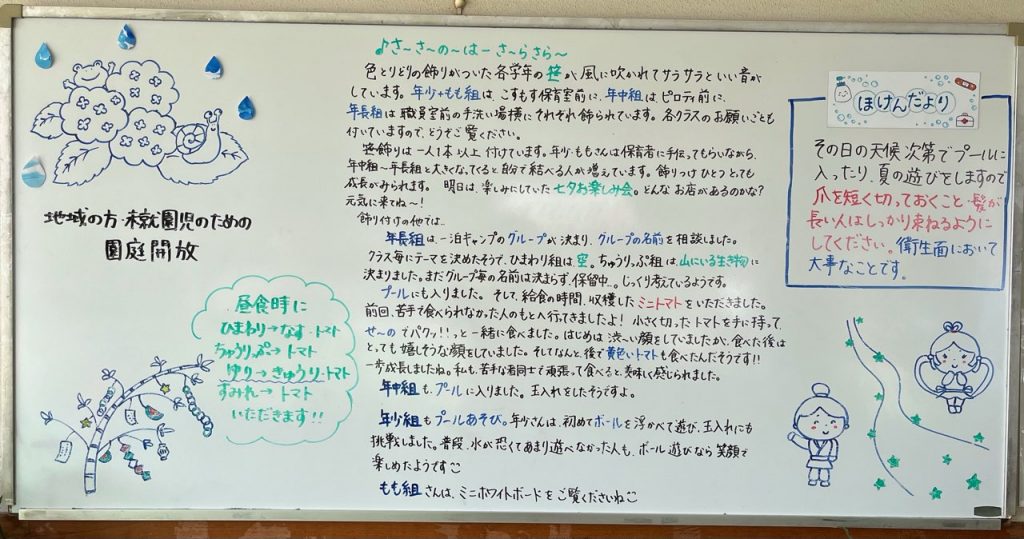 地域の方・未就園児のための
園庭開放
昼食時に
ひまわり→なす・トマト
ちゅうりっぷ→トマト
ゆり→きゅうり・トマト
すみれ→トマト
いただきます!!
♪さ~さ~の~は~さ~らさら~
色とりどりの飾りがついた各学年の笹が、風に吹かれてサラサラといい音が
しています。年少+もも組は、こすもす保育室前に、年中組は、ピロティ前に、
年長組は職員室前の手洗い場横にそれぞれ飾られています。各クラスのお願いごとも
付いていますので、どうぞご覧ください。
笹飾りは一人1本以上付けています。年少・ももさんは保育者に手伝ってもらいながら、
年中組~年長組と大きくなってくると自分で結べる人が増えています。飾りつけひとつとっても
成長がみられます。明日は、楽しみにしていた七夕お楽しみ会。どんなお店があるのかな?
元気に来てね~!
飾り付けの他では…
年長組は、一泊キャンプのグループが決まり、グループの名前を相談しました。
クラス毎にテーマを決めたそうで、ひまわり組は空。ちゅうりっぷ組は、山にいる生き物に
決まりました。まだグループ毎の名前は決まらず、保留中…。じっくり考えているようです。
プールにも入りました。そして、給食の時間、収穫したミニトマトをいただきました。
前回、苦手で食べられなかった人のもとへ行ってきましたよ!小さく切ったトマトを手に持って、
せ~のでパクッ!!っと一緒に食べました。はじめは渋~い顔をしていましたが、食べた後は
とっても嬉しそうな顔をしていました。そしてなんと、後で黄色いトマトも食べたんだそうです!!
一歩成長しましたね。私も、苦手な者同士で頑張って食べると、美味しく感じられました。
年中組も、プールに入りました。玉入れをしたそうですよ。
年少組もプールあそび。年少さんは、初めてボールを浮かべて遊び、玉入れにも
挑戦しました。普段、水が恐くてあまり遊べなかった人も、ボール遊びなら笑顔で
楽しめたようです
もも組さんは、ミニホワイトボードをご覧くださいね
ほけんだより
その日の天候次第でプールに
入ったり、夏の遊びをしますので
爪を短く切っておくこと・髪が
長い人はしっかり束ねるように
してください。衛生面において
大事なことです。